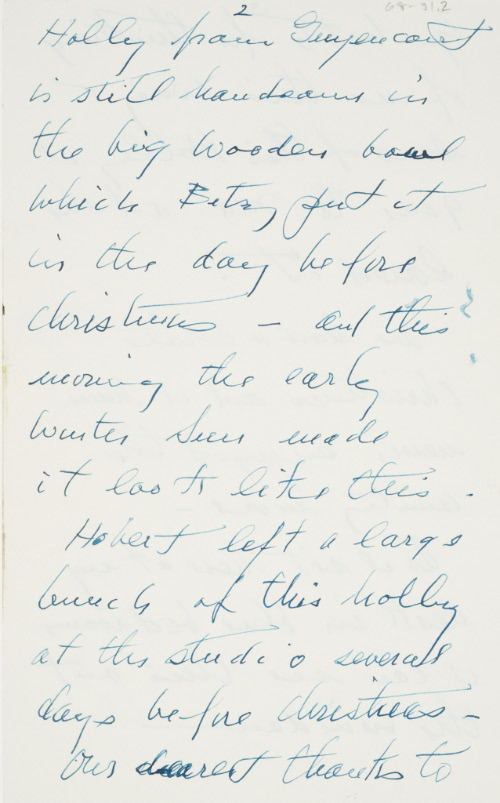 2
68-31.2
Holly from Guyencourt
is still handsome in
the big wooden bowl
which Betsy put it
in the day before
christmas – and this
morning the early
winter sun made
it look like this.
Hobert left a large
bunch of this holly
at the studio several
days before christmas –
Our dearest thanks to